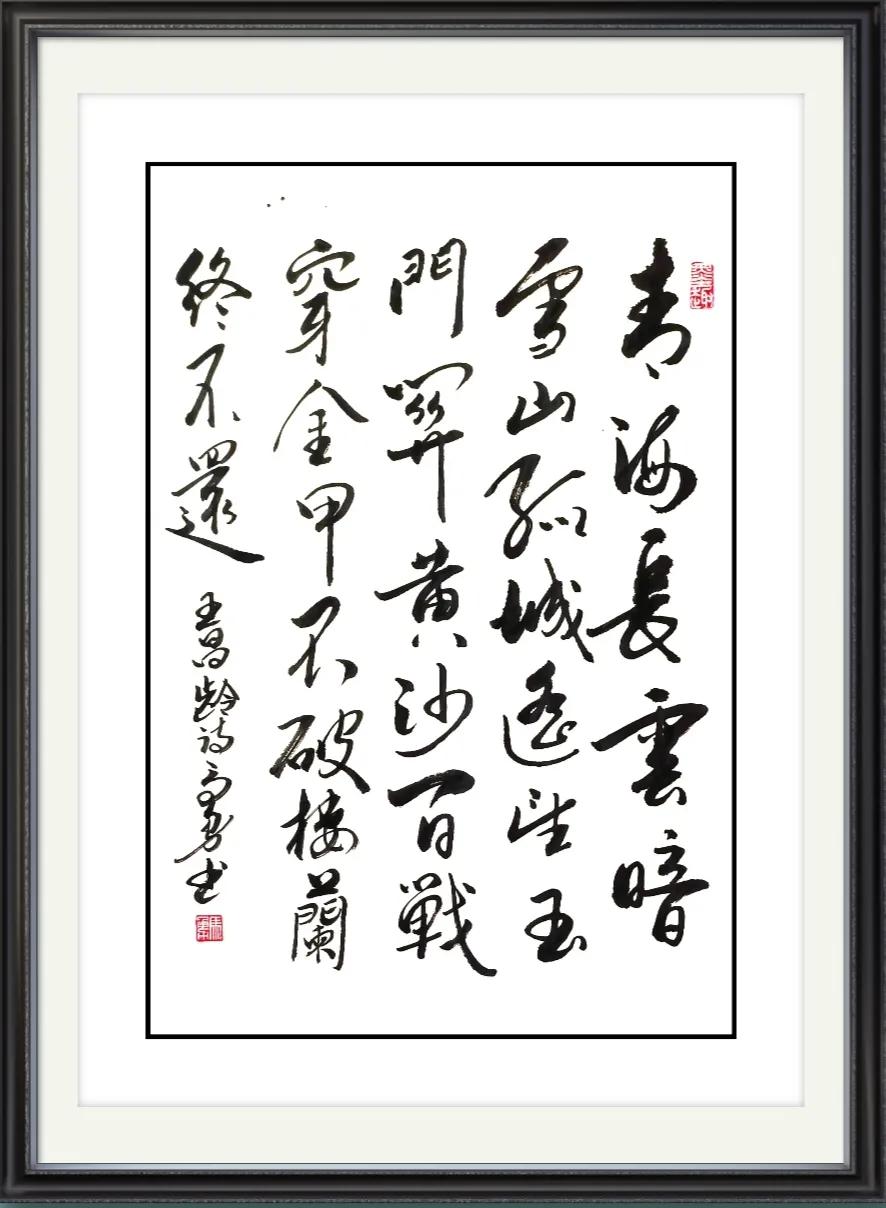 青海長雲暗
雪山孤城遙望玉
門關黄沙百戰
穿金甲不破樓蘭
終不還
王昌龄诗书